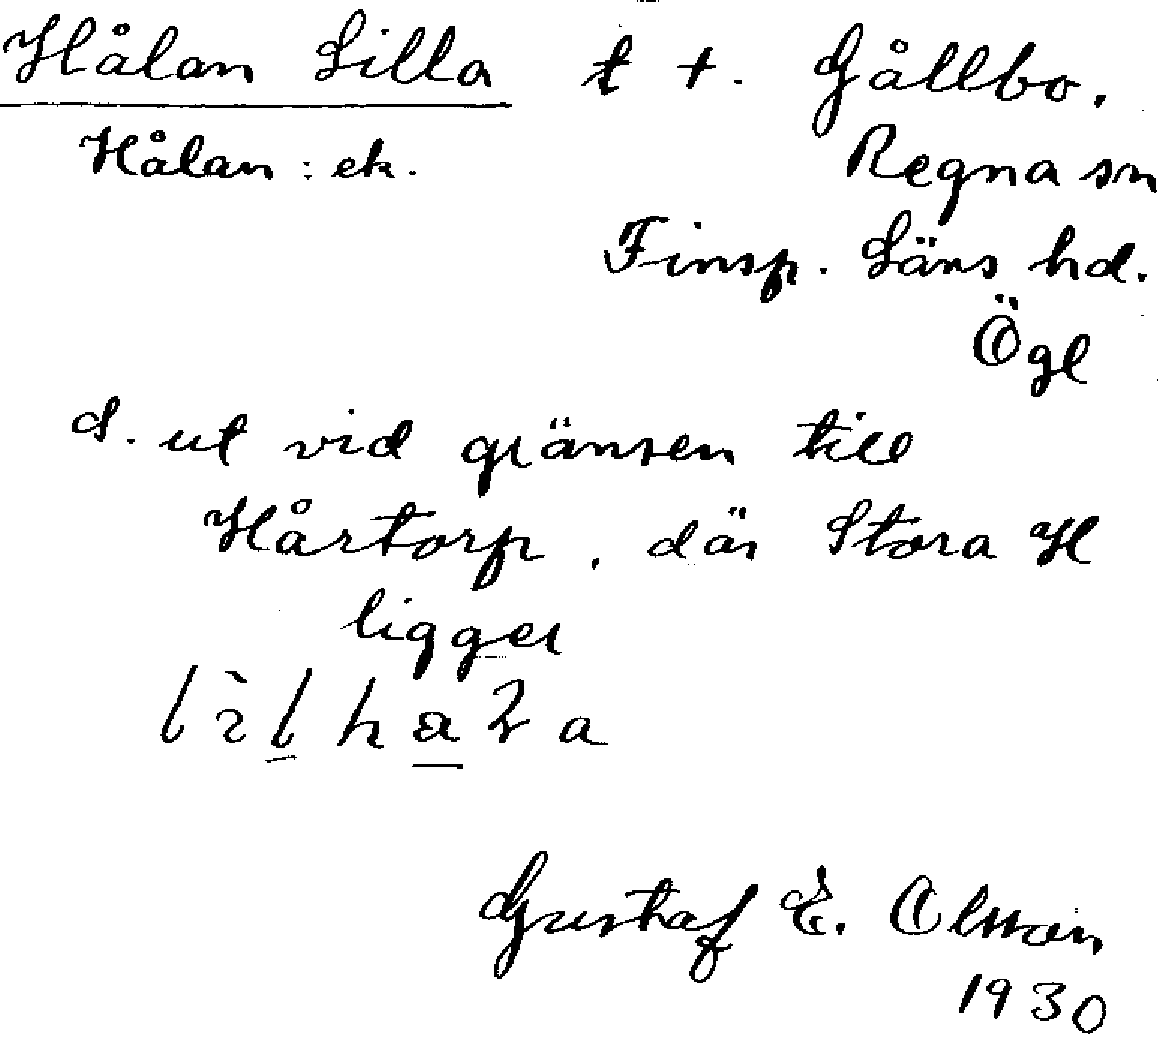 Hålan Lilla t +. Gållbo.
Hålan : ek. Regna sn
Finsp. Läns hd.
Ögl
d. ut vid gränsen till
Hårtorp, där Stora H
ligger
Gustaf E. Olsson
1930